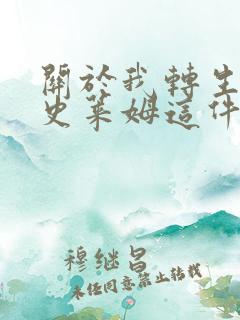 關於我轉生
史萊姆這件
穆继昌
未经同意禁止转载